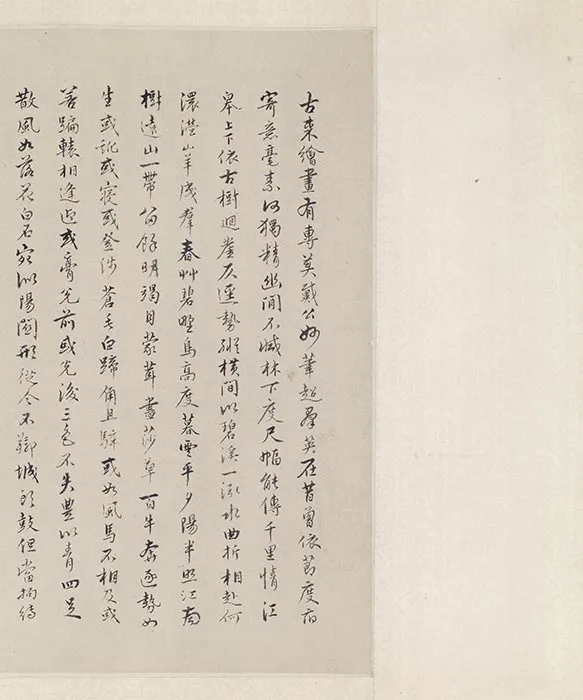 古來繪畫有專莫戴公妙筆超群英在昔曾依莭度府
寄意毫素何獨精幽閒不減林下度尺幅能傳千里情江
皋上下依古樹迴崖仄逕勢縱橫間以碧溪一派水曲折相赴何
濃港山羊成群春艸碧野鳥高度暮雲平夕陽半照江南
樹遠山一帶留餘明褐目蒙茸晝莎草一百牛奔逐勢如
生或訛或寢或登涉蒼毛白蹄角且騂或如風馬不相及或
若蹁轅相逢迎或奮光前或光後三色不失豊以青四足
散風如落花白石宛似陽關形從今不聊城頭鼓但當拘